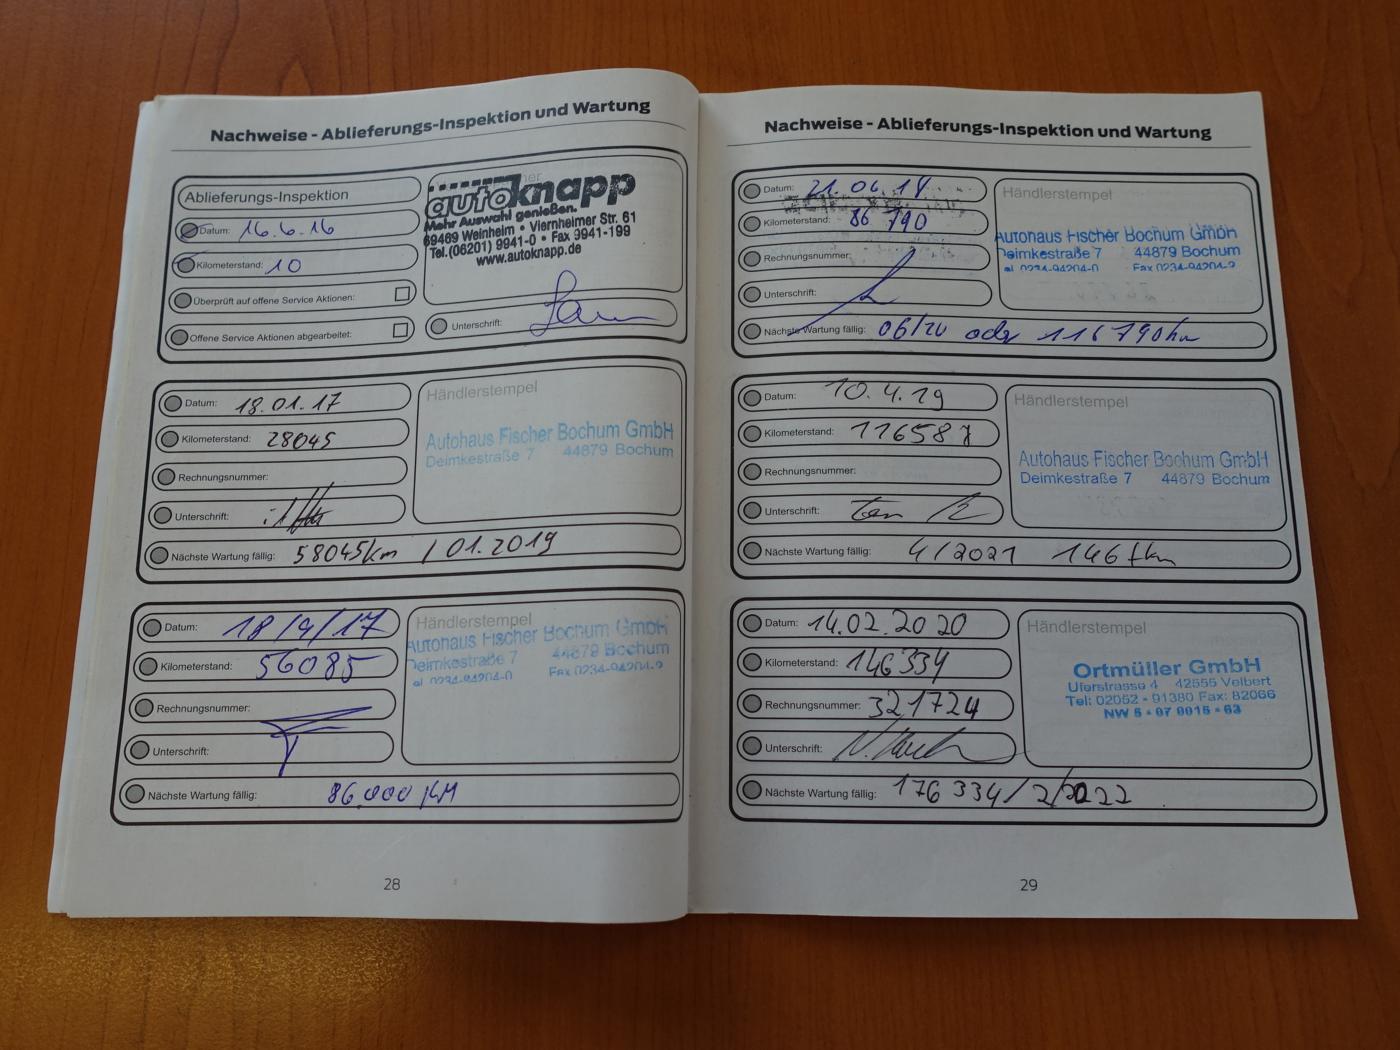 Nachweise - Ablieferungs-Inspektion und Wartung
Ablieferungs-Inspektion
Datum: 16.6.16
Kilometerstand: 10
Überprüft auf offene Service Aktionen:
Offene Service Aktionen abgearbeitet:
autoknapp
Mehr Auswahl genießen.
69469 Weinheim • Viernheimer Str. 61
Tel.(06201) 9941-0 • Fax 9941-199
www.autoknapp.de
Unterschrift:
Datum: 18.01.17
Kilometerstand: 28045
Rechnungsnummer:
Unterschrift:
Nächste Wartung fällig: 58045km / 01.2019
Händlerstempel
Autohaus Fischer Bochum GmbH
Deimkestraße 7 44879 Bochum
Datum: 18/9/17
Kilometerstand: 56085
Rechnungsnummer:
Unterschrift:
Nächste Wartung fällig: 86.000 KM
Händlerstempel
Autohaus Fischer Bochum GmbH
Deimkestraße 7 44879 Bochum
el 0234-94204-0 Fax 0234-94204-9
28
Nachweise - Ablieferungs-Inspektion und Wartung
Datum: 21.06.18
Kilometerstand: 86 790
Rechnungsnummer:
Unterschrift:
Nächste Wartung fällig: 06/20 oder 116 790km
Händlerstempel
Autohaus Fischer Bochum GmbH
Deimkestraße 7 44879 Bochum
el 0234-94204-0 Fax 0234-94204-9
Datum: 10.4.19
Kilometerstand: 116587
Rechnungsnummer:
Unterschrift:
Nächste Wartung fällig: 4/2021 146tkm
Händlerstempel
Autohaus Fischer Bochum GmbH
Deimkestraße 7 44879 Bochum
Datum: 14.02.2020
Kilometerstand: 146334
Rechnungsnummer: 321724
Unterschrift:
Nächste Wartung fällig: 176 334/2/2022
Händlerstempel
Ortmüller GmbH
Uferstrasse 4 42555 Velbert
Tel: 02052 - 91380 Fax: 82066
NW 5 - 07 0015 - 63
29